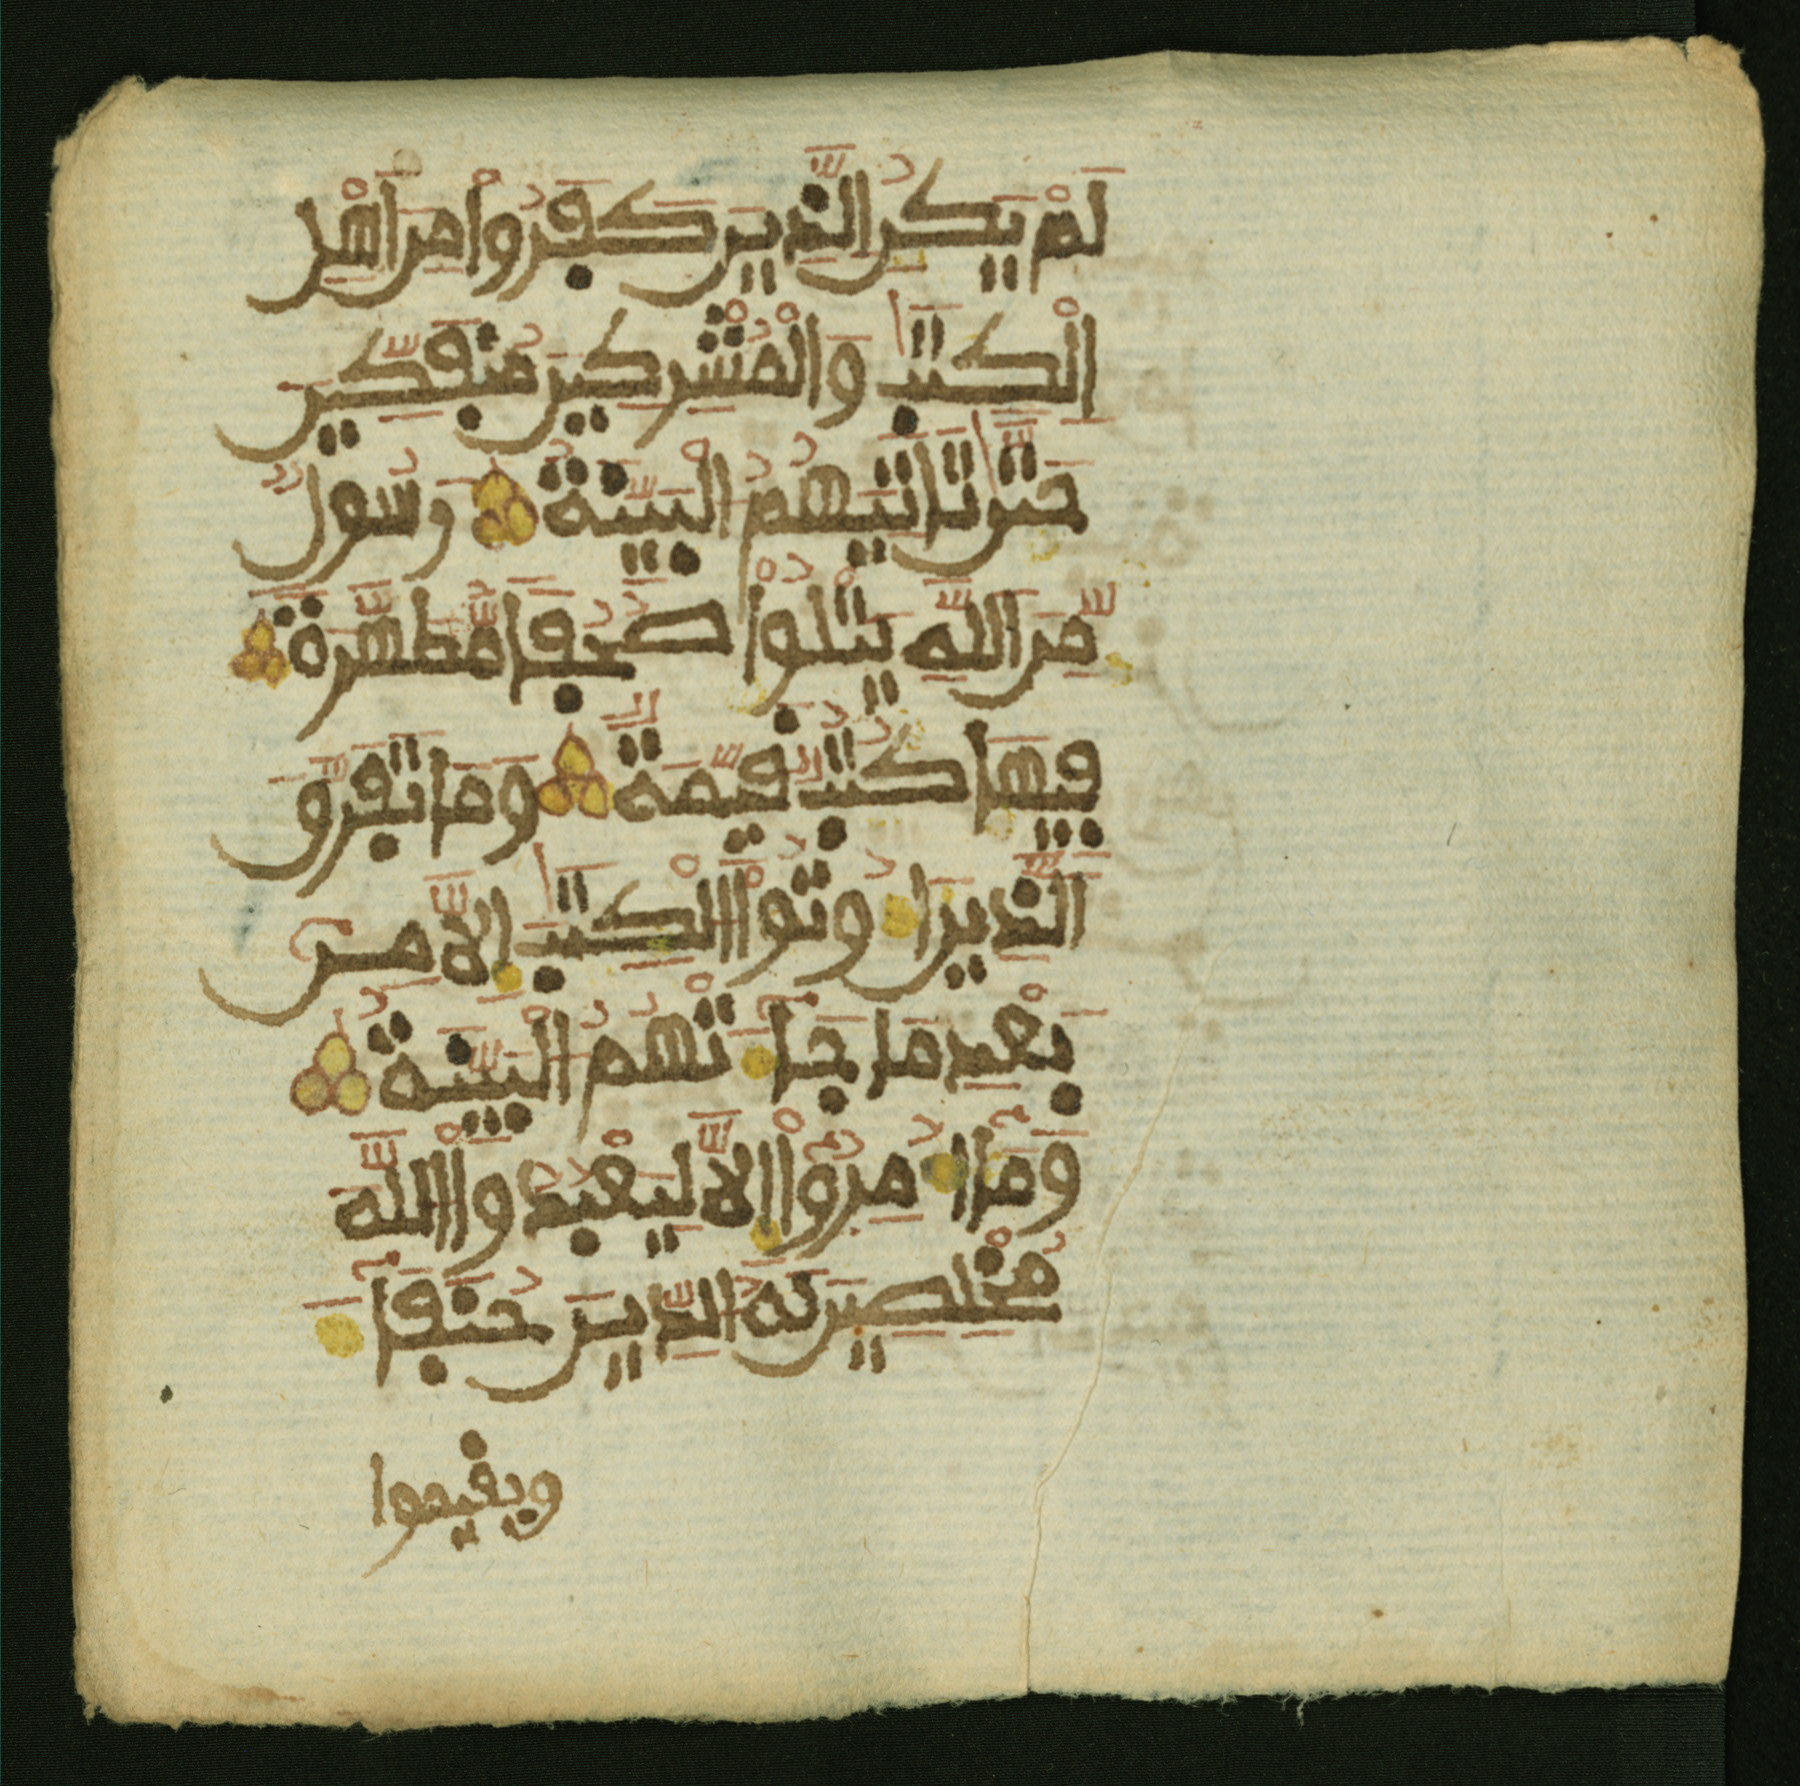 لَمْ يَكُنِ الَّذِينَ كَفَرُواْ مِنَ اَهْلِ
اِ۬لْكِتَٰبِ وَالْمُشْرِكِينَ مُنفَكِّينَ
حَتَّىٰ تَاتِيَهُمُ الْبَيِّنَةُ رَسُولٌ
مِّنَ اَللَّهِ يَتْلُواْ صُحُفاً مُّطَهَّرَةً
فِيهَا كُتُبٌ قَيِّمَةٌ وَمَا تَفَرَّقَ
اَلَّذِينَ أُوتُواْ الْكِتَٰبَ إِلَّا مِنۢ
بَعْدِ مَا جَآءَتْهُمُ الْبَيِّنَةُ
وَمَآ أُمِرُوٓاْ إِلَّا لِيَعْبُدُواْ اللَّهَ
مُخْلِصِينَ لَهُ الدِّينَ حُنَفَآءَ
ويقيموا